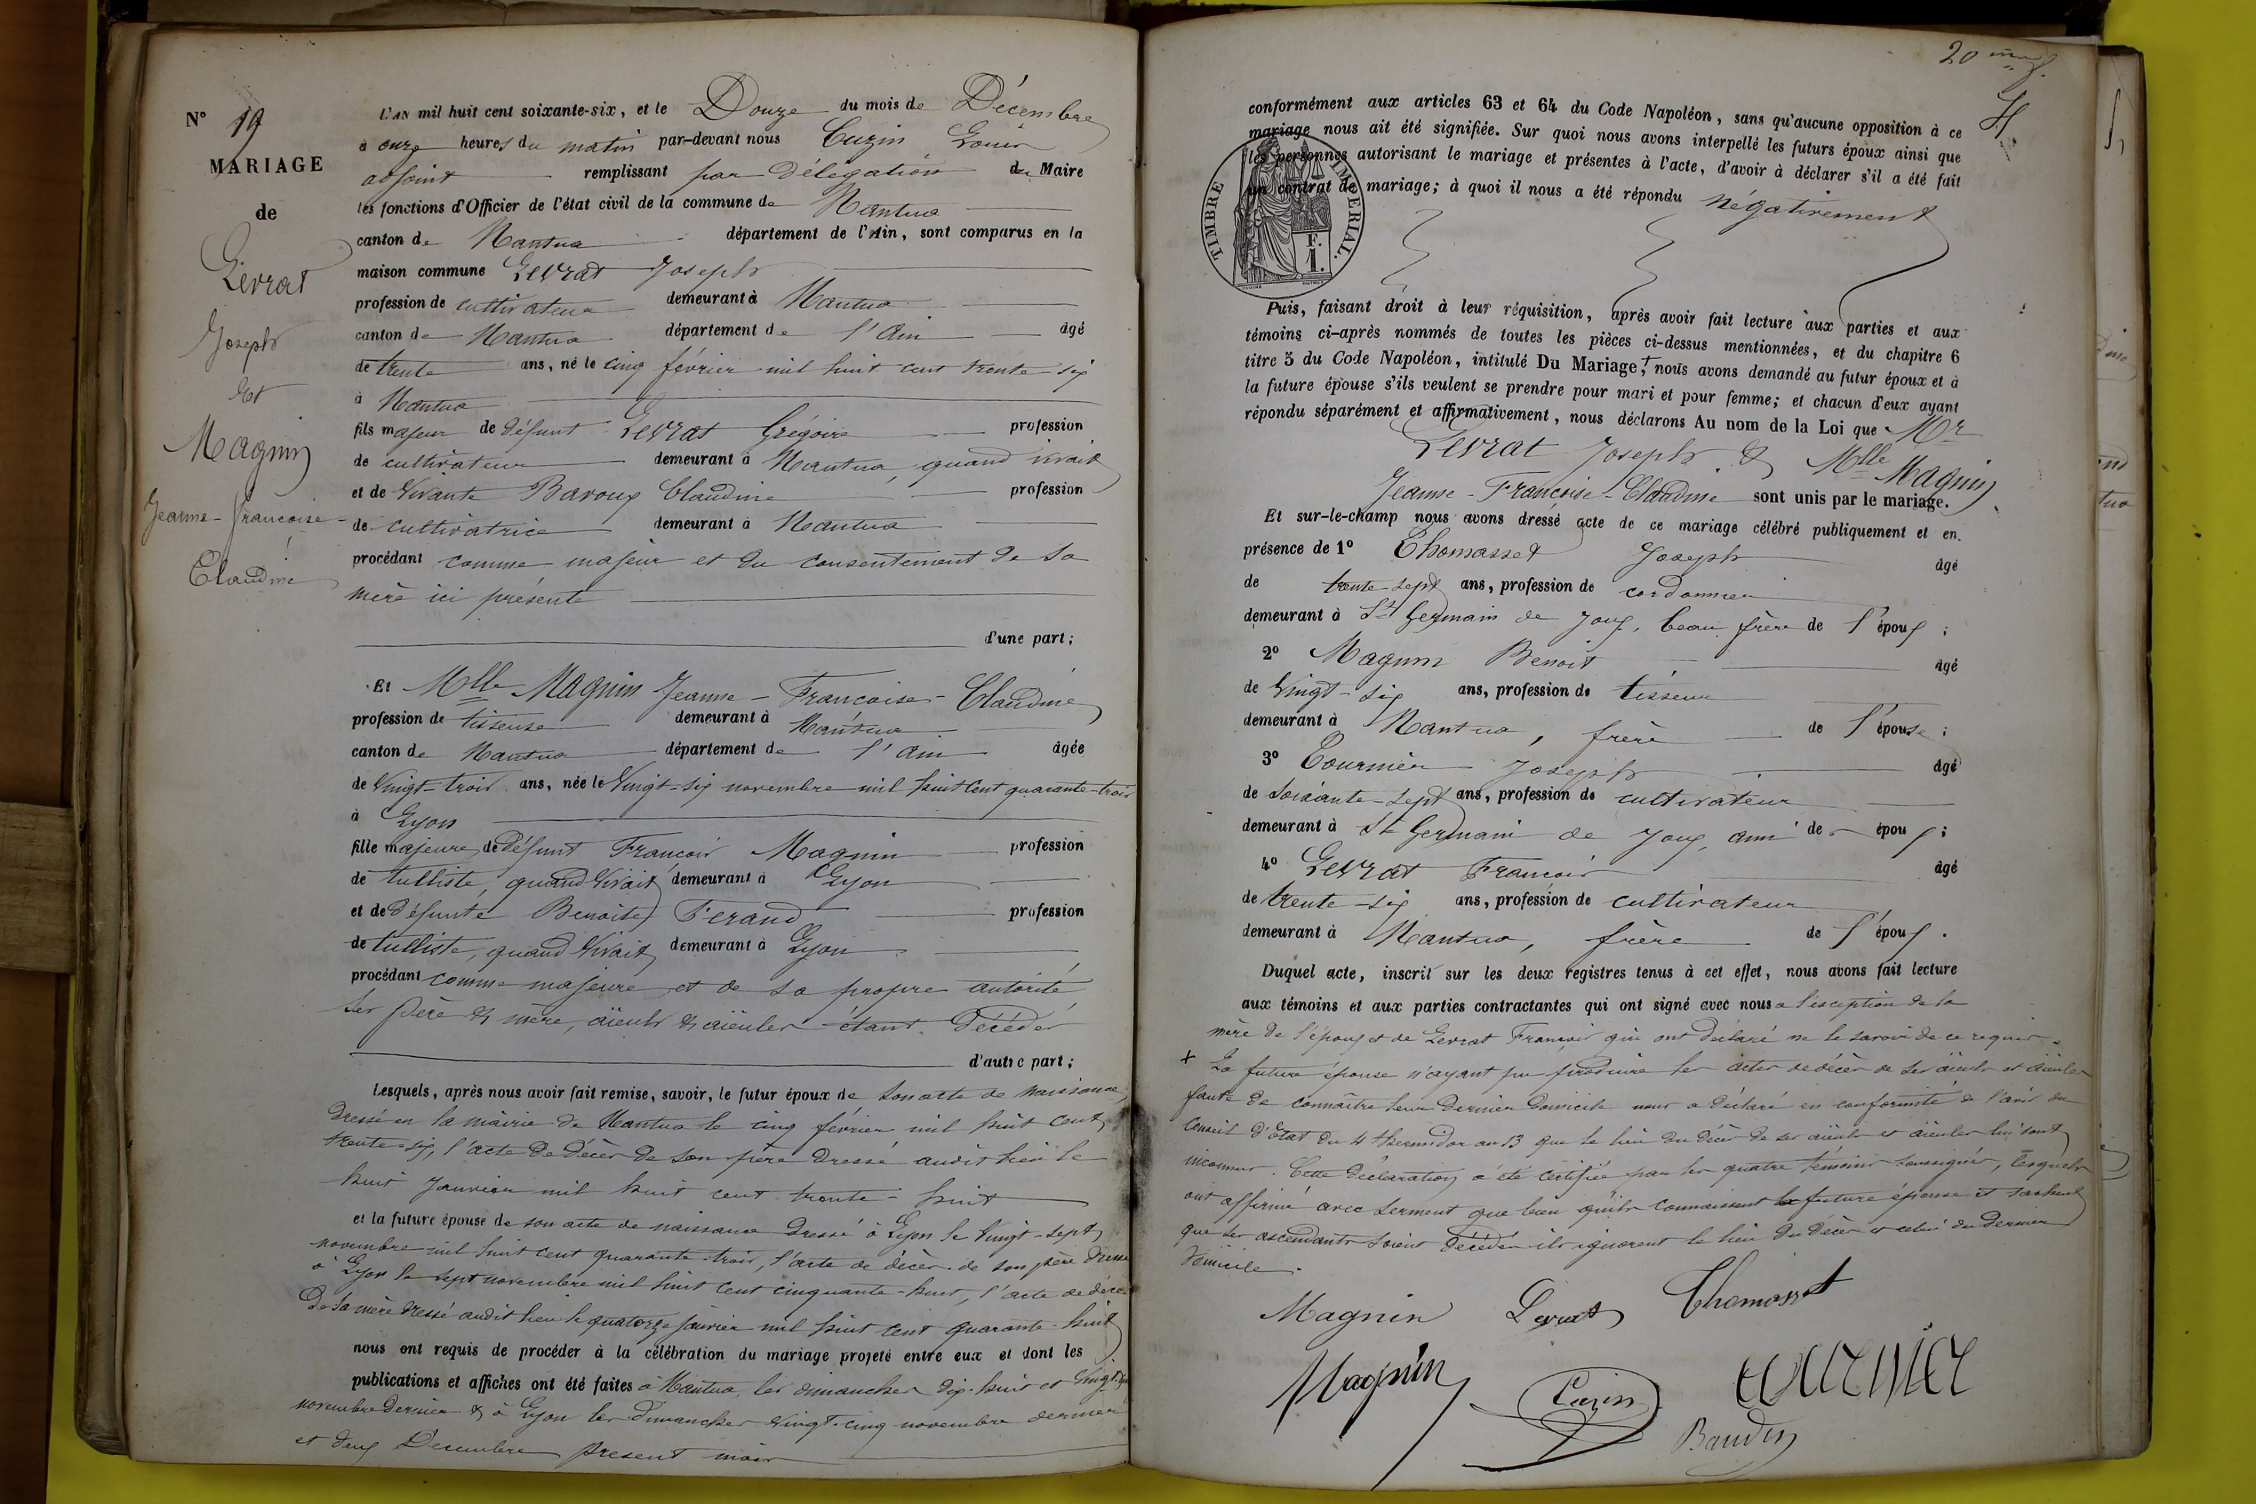 N° 19
MARIAGE
de
Levrat
Joseph
et
Magnin
Jeanne-françoise-
Claudine
L'AN mil huit cent soixante-six, et le Douze du mois de Décembre
à onze heures du matin par-devant nous Cuzin Louis
adjoint remplissant par Délégation du Maire
les fonctions d'Officier de l'état civil de la commune de Nantua
canton de Nantua département de l'Ain, sont comparus en la
maison commune Levrat Joseph
profession de cultivateur demeurant à Nantua
canton de Nantua département de l'Ain âgé
de trente ans, né le cinq février mil huit cent trente-six
à Nantua
fils majeur de défunt Levrat Grégoire profession
de cultivateur demeurant à Nantua, quand vivait
et de vivante Baroux Claudine profession
de cultivatrice demeurant à Nantua
procédant comme majeur et du consentement de sa
mère ici présente
d'une part;
Et Mlle Magnin Jeanne-Françoise-Claudine
profession de tisseuse demeurant à Nantua
canton de Nantua département de l'Ain âgée
de vingt-trois ans, née le vingt-six novembre mil huit cent quarante-trois
à Lyon
fille majeure de défunt François Magnin profession
de tulliste, quand vivait demeurant à Lyon
et de défunte Benoite Feraud profession
de tulliste, quand vivait demeurant à Lyon
procédant comme majeure et de sa propre autorité
ses père & mère, aïeuls & aïeules étant Décédés
d'autre part;
Lesquels, après nous avoir fait remise, savoir, le futur époux de son acte de naissance,
Dressé en la mairie de Nantua le cinq février mil huit cent
trente-six, l'acte de décès de son père dressé audit lieu le
huit Janvier mil huit cent trente-huit
et la future épouse de son acte de naissance dressé à Lyon le vingt-sept
novembre mil huit cent quarante-trois, l'acte de décès de son père dressé
à Lyon le sept novembre mil huit cent cinquante-huit, l'acte de décès
De sa mère dressé audit lieu le quatorze janvier mil huit cent quarante-huit
nous ont requis de procéder à la célébration du mariage projeté entre eux et dont les
publications et affiches ont été faites à Nantua les dimanches dix-huit et vingt-cinq
novembre dernier & à Lyon les dimanches vingt-cinq novembre dernier
et deux Décembre présent mois
20
conformément aux articles 63 et 64 du Code Napoléon, sans qu'aucune opposition à ce
mariage nous ait été signifiée. Sur quoi nous avons interpellé les futurs époux ainsi que
les personnes autorisant le mariage et présentes à l'acte, d'avoir à déclarer s'il a été fait
un contrat de mariage; à quoi il nous a été répondu négativement
TIMBRE IMPERIAL.
F.
1.
Puis, faisant droit à leur réquisition, après avoir fait lecture aux parties et aux
témoins ci-après nommés de toutes les pièces ci-dessus mentionnées, et du chapitre 6
titre 5 du Code Napoléon, intitulé Du Mariage,+ nous avons demandé au futur époux et à
la future épouse s'ils veulent se prendre pour mari et pour femme; et chacun d'eux ayant
répondu séparément et affirmativement, nous déclarons Au nom de la Loi que Mr
Levrat Joseph & Mlle Magnin
Jeanne-Françoise-Claudine sont unis par le mariage.
Et sur-le-champ nous avons dressé acte de ce mariage célébré publiquement et en
présence de 1° Thomasset Joseph âgé
de trente-sept ans, profession de cordonnier
demeurant à St Germain de Joux, beau frère de l'époux;
2° Magnin Benoit âgé
de vingt-six ans, profession de tisseur
demeurant à Nantua, frère de l'épouse;
3° Tournier Joseph âgé
de soixante-sept ans, profession de cultivateur
demeurant à St Germain de Joux, ami de époux;
4° Levrat François âgé
de trente-six ans, profession de cultivateur
demeurant à Nantua, frère de l'époux.
Duquel acte, inscrit sur les deux registres tenus à cet effet, nous avons fait lecture
aux témoins et aux parties contractantes qui ont signé avec nous à l'exception de la
mère de l'époux et de Levrat François qui ont déclaré ne le savoir de ce requis.
+ La future épouse n'ayant pu produire les actes de décès de ses aïeuls et aïeules
faute de connaître leur dernier domicile nous a déclaré en conformité de l'avis du
Conseil d'Etat du 4 thermidor an 13 que le lieu du décès de ses aïeuls et aïeules lui sont
inconnus. Cette déclaration a été certifiée par les quatre témoins soussignés, lesquels
ont affirmé avec serment que bien qu'ils connaissent la future épouse et sachent
que ses ascendants soient décédés ils ignorent le lieu du décès et celui du dernier
domicile.
Magnin Levrat Thomasset
Magnin Cuzin tournier
Baudin